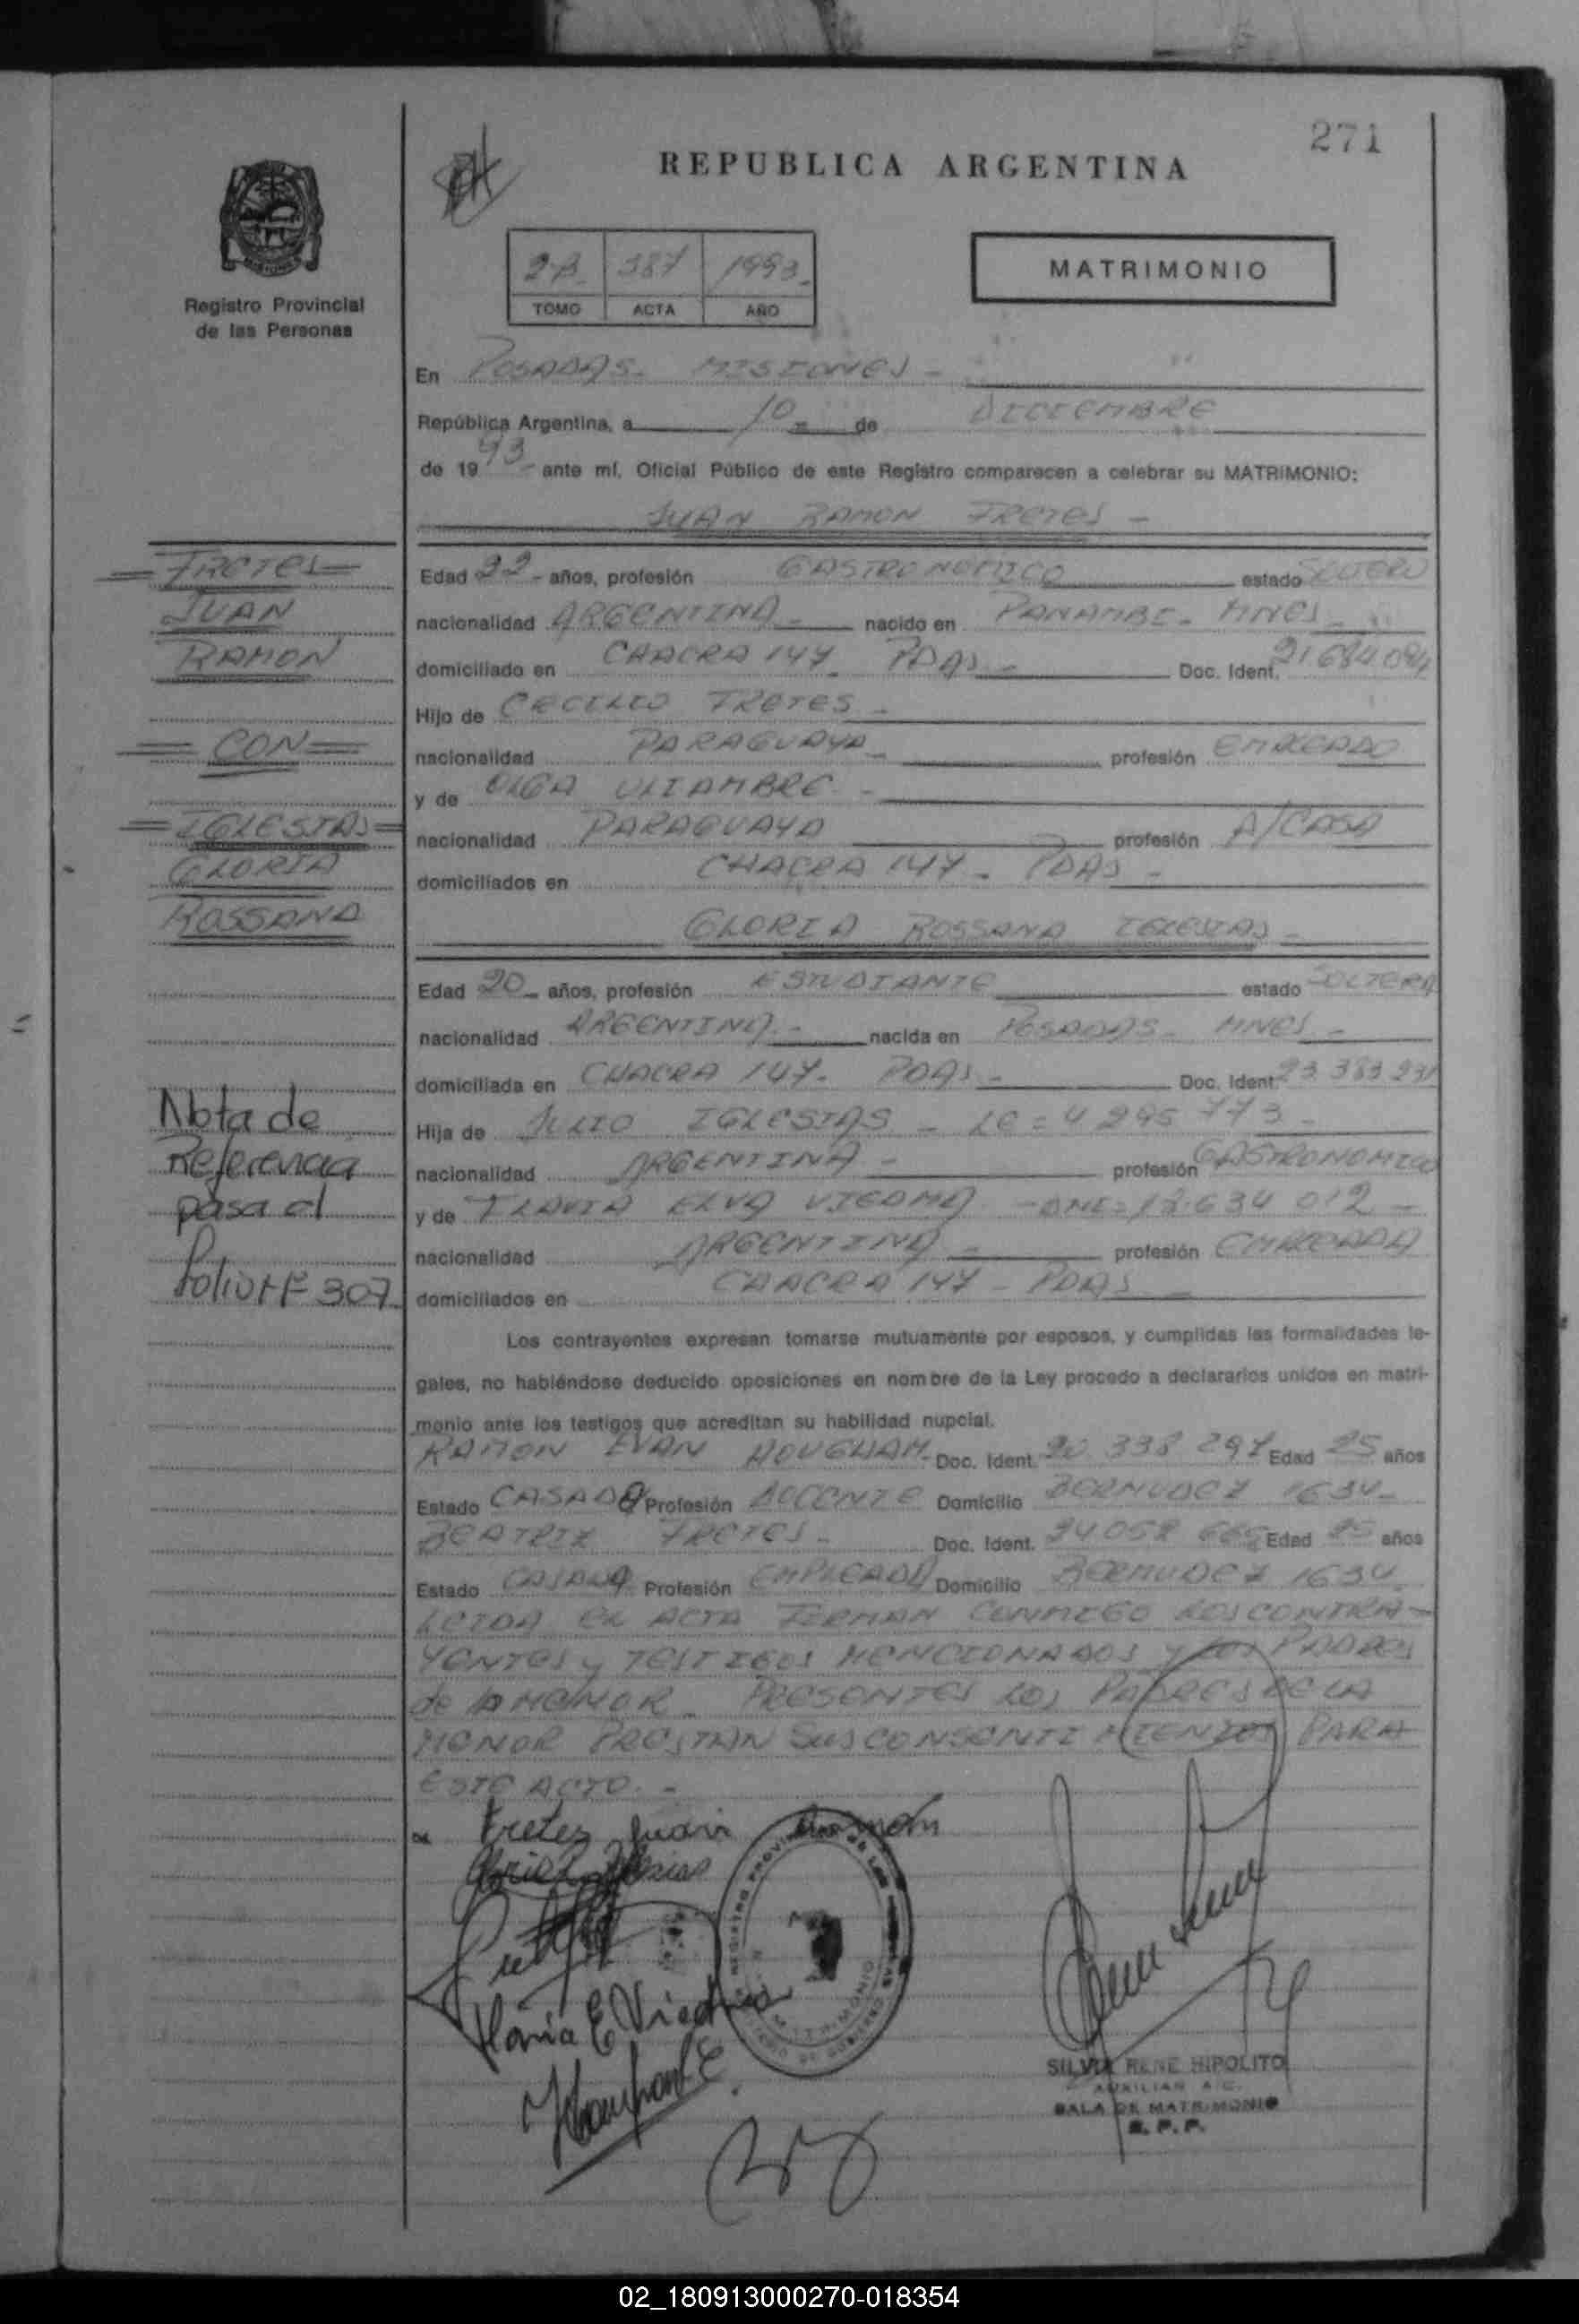 271
REPUBLICA ARGENTINA
Registro Provincial
de las Personas
387 1993
TOMO ACTA AÑO
MATRIMONIO
En POSADAS - MISIONES -
República Argentina, a 10 - de DICIEMBRE
de 1993 - ante mí, Oficial Público de este Registro comparecen a celebrar su MATRIMONIO:
JUAN RAMON FRETES -
FRETES
JUAN
RAMON
CON
IGLESIAS
GLORIA
ROSSANA
Edad 22 - años, profesión GASTRONOMICO estado SOLTERO
nacionalidad ARGENTINA - nacido en PANAMBI - MNES -
domiciliado en CHACRA 147 - PDAS - Doc. Ident. 21.684.094
Hijo de CECILIO FRETES -
nacionalidad PARAGUAYA - profesión EMPLEADO
y de OLGA -
nacionalidad PARAGUAYA profesión A/CASA
domiciliados en CHACRA 147 - PDAS -
GLORIA ROSSANA IGLESIAS -
Edad 20 - años, profesión ESTUDIANTE estado SOLTERA
nacionalidad ARGENTINA - nacida en POSADAS - MNES -
domiciliada en CHACRA 147 - PDAS - Doc. Ident. 23 383
Hija de JULIO IGLESIAS - LE = 4 295 773 -
nacionalidad ARGENTINA - profesión GASTRONOMICO
y de FLAVIA ELVA VIEDMA - DNI = 634 012 -
nacionalidad ARGENTINA - profesión EMPLEADA
domiciliados en CHACRA 147 - PDAS -
Nota de
Referencia
pasa al
folio Nº 307
Los contrayentes expresan tomarse mutuamente por esposos, y cumplidas las formalidades le-
gales, no habiéndose deducido oposiciones en nombre de la Ley procedo a declararlos unidos en matri-
monio ante los testigos que acreditan su habilidad nupcial.
RAMON IVAN - Doc. Ident. 20 338 297 Edad 25 años
Estado CASADO Profesión DOCENTE Domicilio BERMUDEZ 1634 -
BEATRIZ FRETES - Doc. Ident. 24 058 Edad 25 años
Estado CASADA Profesión EMPLEADA Domicilio BERMUDEZ 1634
LEIDA EL ACTA FIRMAN CONMIGO LOS CONTRA-
YENTES y TESTIGOS MENCIONADOS y LOS PADRES
de la MENOR - PRESENTES LOS PADRES DE LA
MENOR PRESTAN SUS CONSENTIMIENTOS PARA
ESTE ACTO. -
Fretes Juan Ramón
SILVIA RENE HIPOLITO
AUXILIAR A.C.
SALA DE MATRIMONIO
R. P. P.
02_180913000270-018354